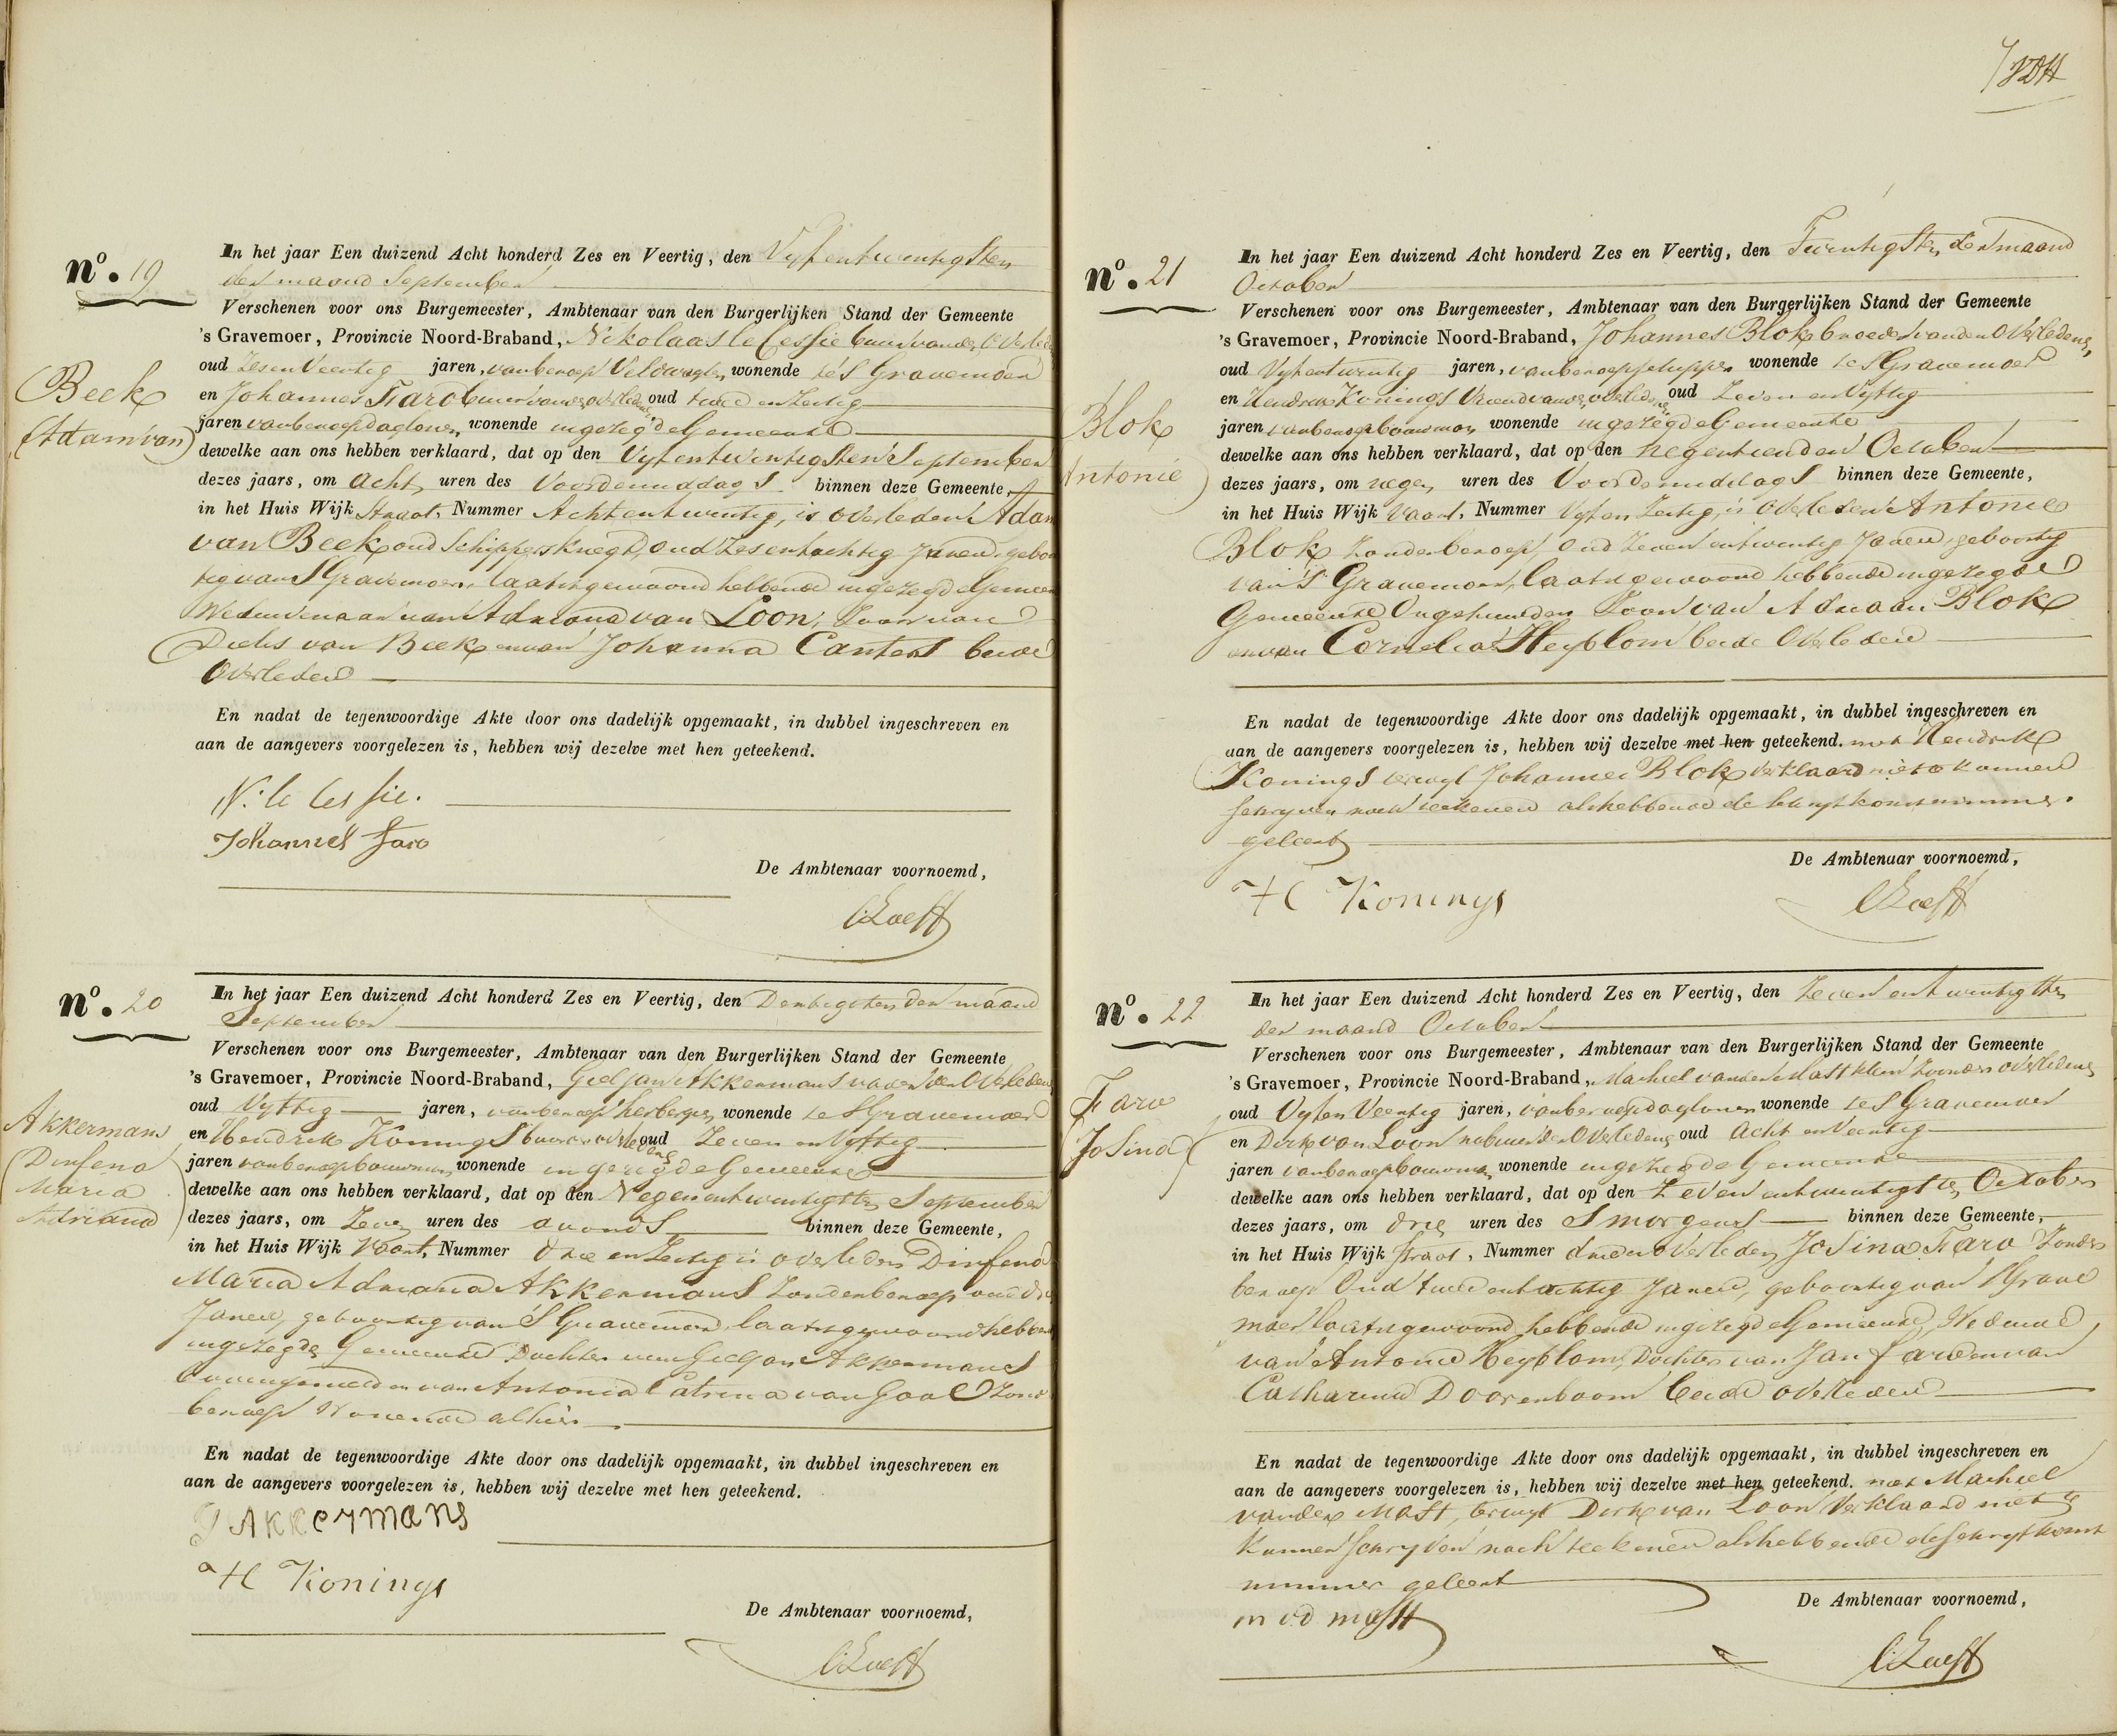 No. 19
Beek
(Adam van)
In het jaar Een duizend Acht honderd Zes en Veertig, den Vyfentwintigsten
der maand September
Verschenen voor ons Burgemeester, Ambtenaar van den Burgerlijken Stand der Gemeente
's Gravemoer, Provincie Noord-Braband, Nikolaas le Cessie buur van den Overleden
oud Zes en Veertig jaren, van beroep Veldwagter, wonende te 's Gravemoer
en Johannes Faro buur van den overledene oud twee en Zestig
jaren van beroep dagloner, wonende ingezegde Gemeente
dewelke aan ons hebben verklaard, dat op den Vyfentwintigsten September
dezes jaars, om Acht uren des Voordemiddags binnen deze Gemeente,
in het Huis Wijk Straat, Nummer Achtentwintig, is overleden Adam
van Beek oud Schippersknegt, oud Zesentachtig Jaren, geboor
tig van 'S Gravemoer, laatst gewoond hebbende ingezegde Gemeen
Weduwenaar van Adriana van Loon, Zoon van
Dielis van Beek en van Johanna Canters beide
Overleden
En nadat de tegenwoordige Akte door ons dadelijk opgemaakt, in dubbel ingeschreven en
aan de aangevers voorgelezen is, hebben wij dezelve met hen geteekend.
N: le Cessie.
Johannes Faro
De Ambtenaar voornoemd,
No. 20
Akkermans
(Dinfena
Maria
Adriana)
In het jaar Een duizend Acht honderd Zes en Veertig, den Dertigsten der maand
September
Verschenen voor ons Burgemeester, Ambtenaar van den Burgerlijken Stand der Gemeente
's Gravemoer, Provincie Noord-Braband, Gieljan Akkermans vader der Overledene
oud Vyftig jaren, van beroep herbergier, wonende te 'S Gravemoer
en Hendrik Konings buur der overledene oud Zeven en Vyftig
jaren van beroep bouwman, wonende ingezegde Gemeente
dewelke aan ons hebben verklaard, dat op den Negenentwintigsten September
dezes jaars, om Zeven uren des avonds binnen deze Gemeente,
in het Huis Wijk Vaart, Nummer Drie en Zestig is overleden Dinfena
Maria Adriana Akkermans Zonder beroep oud drie
Jaren, geboortig van 'S Gravemoer laatst gewoond hebben
ingezegde Gemeente Dochter van Gieljan Akkermans
bovengemeld en van Antonia Catrina van Gool Zond
beroep Wonende alhier
En nadat de tegenwoordige Akte door ons dadelijk opgemaakt, in dubbel ingeschreven en
aan de aangevers voorgelezen is, hebben wij dezelve met hen geteekend.
G Akkermans
H Konings
De Ambtenaar voornoemd,
No. 21
Blok
Antonie)
In het jaar Een duizend Acht honderd Zes en Veertig, den Twintigsten der maand
October
Verschenen voor ons Burgemeester, Ambtenaar van den Burgerlijken Stand der Gemeente
's Gravemoer, Provincie Noord-Braband, Johannes Blok broeder van den Overledene,
oud Vyfentwintig jaren, van beroep schipper wonende te 'S Gravemoer
en Hendrik Konings Vriend van den overledene oud Zeven en Vyftig
jaren van beroep bouwman wonende ingezegde Gemeente
dewelke aan ons hebben verklaard, dat op den Negentienden October
dezes jaars, om negen uren des Voordemiddags binnen deze Gemeente,
in het Huis Wijk Vaart, Nummer Vyf en Zestig, is Overleden Antonie
Blok Zonder beroep, oud Zeven entwintig Jaren, geboortig
van 'S Gravemoer, laatst gewoond hebbende ingezegde
Gemeente Ongehuwden Zoon van Adriaan Blok
en van Cornelia Heyblom beide Overleden
En nadat de tegenwoordige Akte door ons dadelijk opgemaakt, in dubbel ingeschreven en
aan de aangevers voorgelezen is, hebben wij dezelve met hen geteekend. met Hendrik
Konings terwyl Johannes Blok verklaard niet te kunnen
schryven noch teekenen als hebbende de schryfkonst nimmer
geleert
H Konings
De Ambtenaar voornoemd,
No. 22
Faro
Josina)
In het jaar Een duizend Acht honderd Zes en Veertig, den Zeven entwintigsten
der maand October
Verschenen voor ons Burgemeester, Ambtenaar van den Burgerlijken Stand der Gemeente
's Gravemoer, Provincie Noord-Braband, Machiel van der Mast kleinzoon der overledene
oud Vyf en Veertig jaren, van beroep dagloner wonende te 'S Gravemoer
en Dirk van Loon nabuur der Overledene oud Acht en Veertig
jaren van beroep bouwman, wonende ingezegde Gemeente
dewelke aan ons hebben verklaard, dat op den Zeven entwintigste October
dezes jaars, om drie uren des Smorgens binnen deze Gemeente,
in het Huis Wijk Straat, Nummer drie is overleden, Josina Faro Zonder
beroep Oud twee entachtig Jaren, geboortig van 'S Grave
moer laatst gewoond hebbende ingezegde Gemeente, Weduwe
van Antonie Heyblom, Dochter van Jan Faro en van
Catharina Doorenboom beide overleden
En nadat de tegenwoordige Akte door ons dadelijk opgemaakt, in dubbel ingeschreven en
aan de aangevers voorgelezen is, hebben wij dezelve met hen geteekend. met Machiel
van der Mast, terwyl Dirk van Loon verklaard niet te
kunnen schryven noch teekenen als hebbende de schryfkonst
nimmer geleert
m vd mast
De Ambtenaar voornoemd,